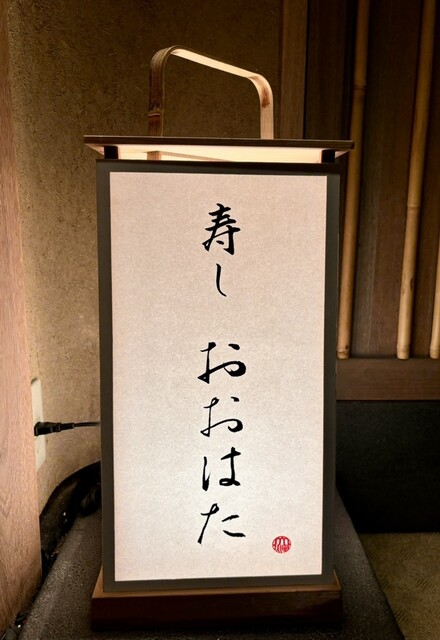 寿し おおはた